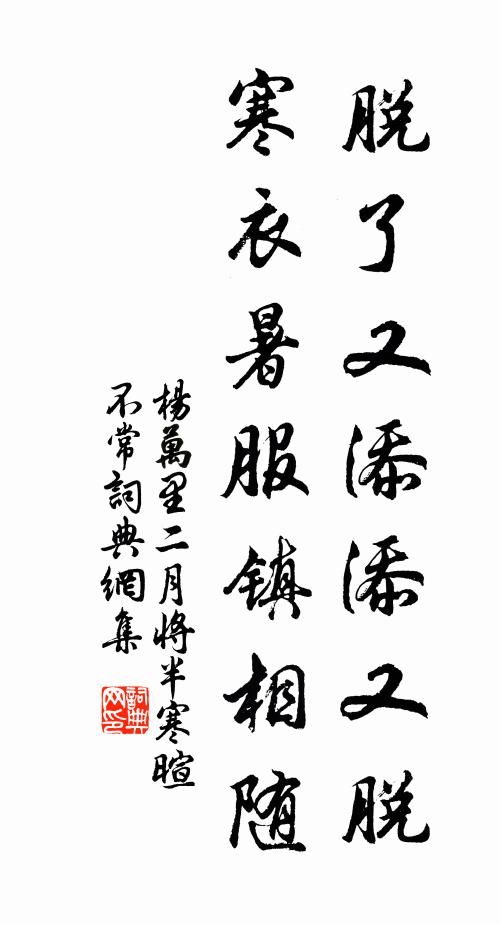 脱了又添添又脱
寒衣暑服镇相随
楊萬里二月將半寒暄
不常詞典網集
詞典
网印